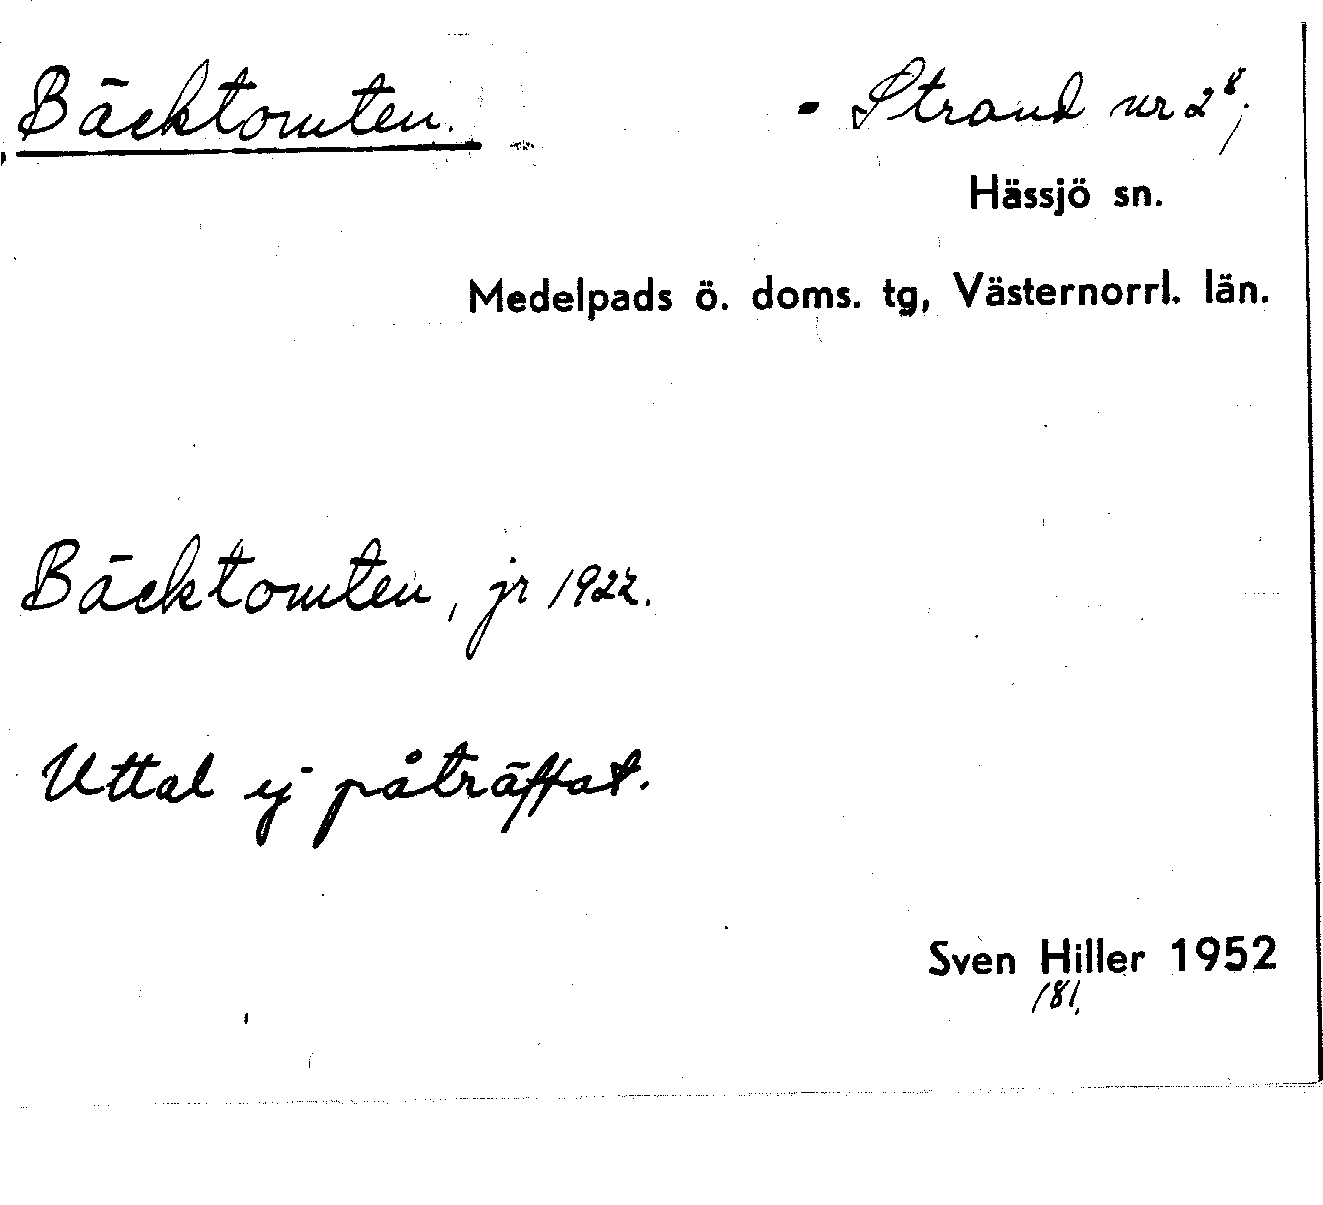 Bäcktomten. - Strand nr 2⁸,
Hässjö sn.
Medelpads ö. doms. tg, Västernorrl. län.
Bäcktomten, jr 1922.
Uttal ej påträffat.
Sven Hiller 1952
181.